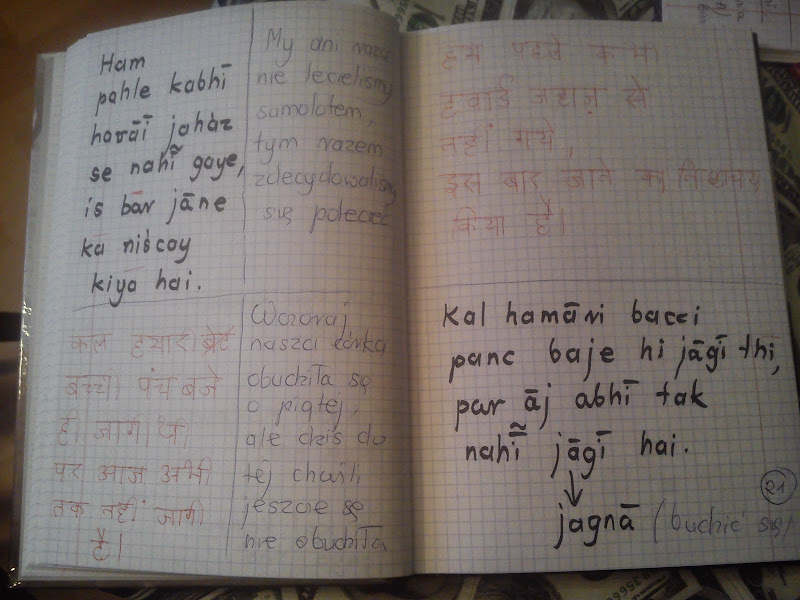 Ham
pahle kabhī
havāī jahāz
se nahī̃ gaye,
is bār jāne
ka niścay
kiya hai.
My ani razu
nie lecieliśmy
samolotem,
tym razem
zdecydowaliśmy
się polecieć
कल हमारी
बच्ची पंच बजे
ही जागी थी
पर आज अभी
तक नहीं जागी
है।
Wczoraj
nasza córka
obudziła się
o piątej,
ale dziś do
tej chwili
jeszcze się
nie obudziła
हम पहले कभी
हवाई जहाज़ से
नहीं गये,
इस बार जाने का निश्चय
किया है।
Kal hamāri bacci
panc baje hi jāgī thi,
par āj abhī tak
nahī̃ jāgī hai.
jagnā (budzić się)
21